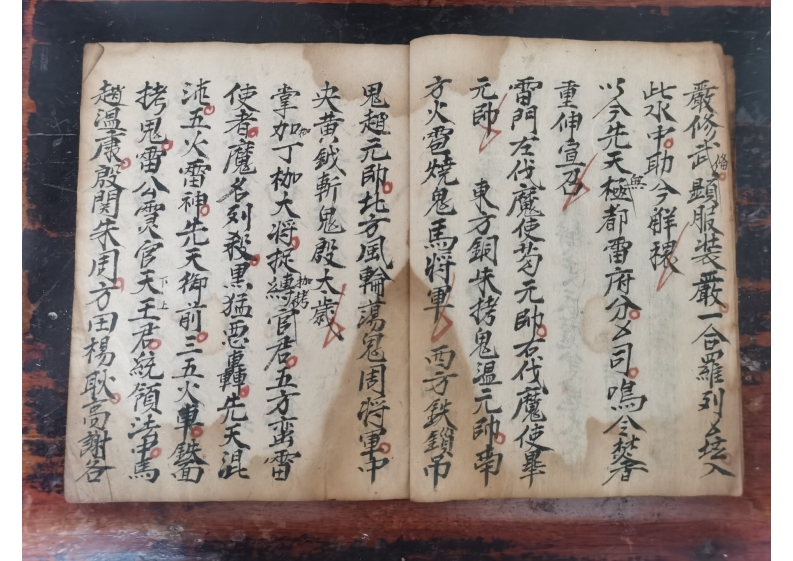 嚴修武備顯服裝嚴一合羅列乆坛入
此水中助今解穢
以今先天無極都雷府分乆司鳴今焚香
重伸宣召
雷門左伐魔使苟元帥右伐魔使畢
元帥 東方銅朱拷鬼温元帥南
方火雹燒鬼馬將軍 西方鉄鎖吊
鬼趙元帥北方風輪蕩鬼周將軍中
央黄鉞斬鬼殷大歲
掌加丁枷大將捉縛枷拷官君五方蛮雷
使者魔名列殺黒猛惡轟先天混
沌五火雷神先天御前三五火車鉄面
拷鬼雷公霊官天下上王君統領法中馬
趙温康殷関朱周方田楊耿高謝各